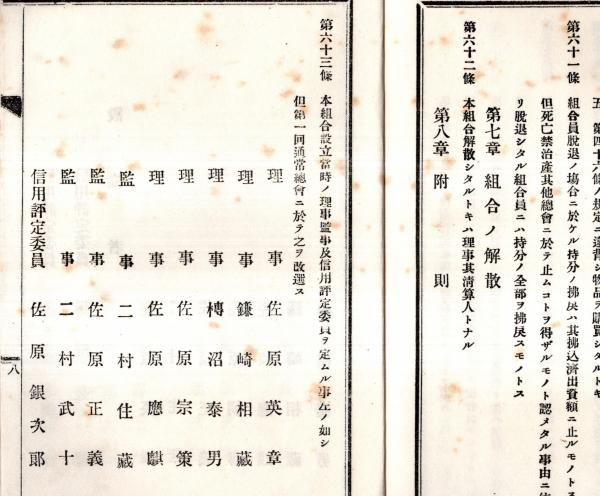 五 第四十六條ノ規定ニ違背シ物品ヲ購買シタルトキ
第六十一條 組合員脫退ノ場合ニ於ケル持分ノ拂戾ハ其拂込濟出資額ニ止ルモノトス
但死亡禁治產其他總會ニ於テ止ムコトヲ得ザルモノト認メタル事由ニ依
リ脫退シタル組合員ニハ持分ノ全部ヲ拂戾スモノトス
第七章 組合ノ解散
第六十二條 本組合解散シタルトキハ理事其淸算人トナル
第八章 附則
第六十三條 本組合設立當時ノ理事監事及信用評定委員ヲ定ムル事左ノ如シ
但第一回通常總會ニ於テ之ヲ改選ス
理事 佐原英章
理事 鎌崎相藏
理事 樽沼泰男
理事 佐原宗策
理事 佐原應騏
監事 二村佳藏
監事 佐原正義
監事 二村武十
信用評定委員 佐原銀次郞
八